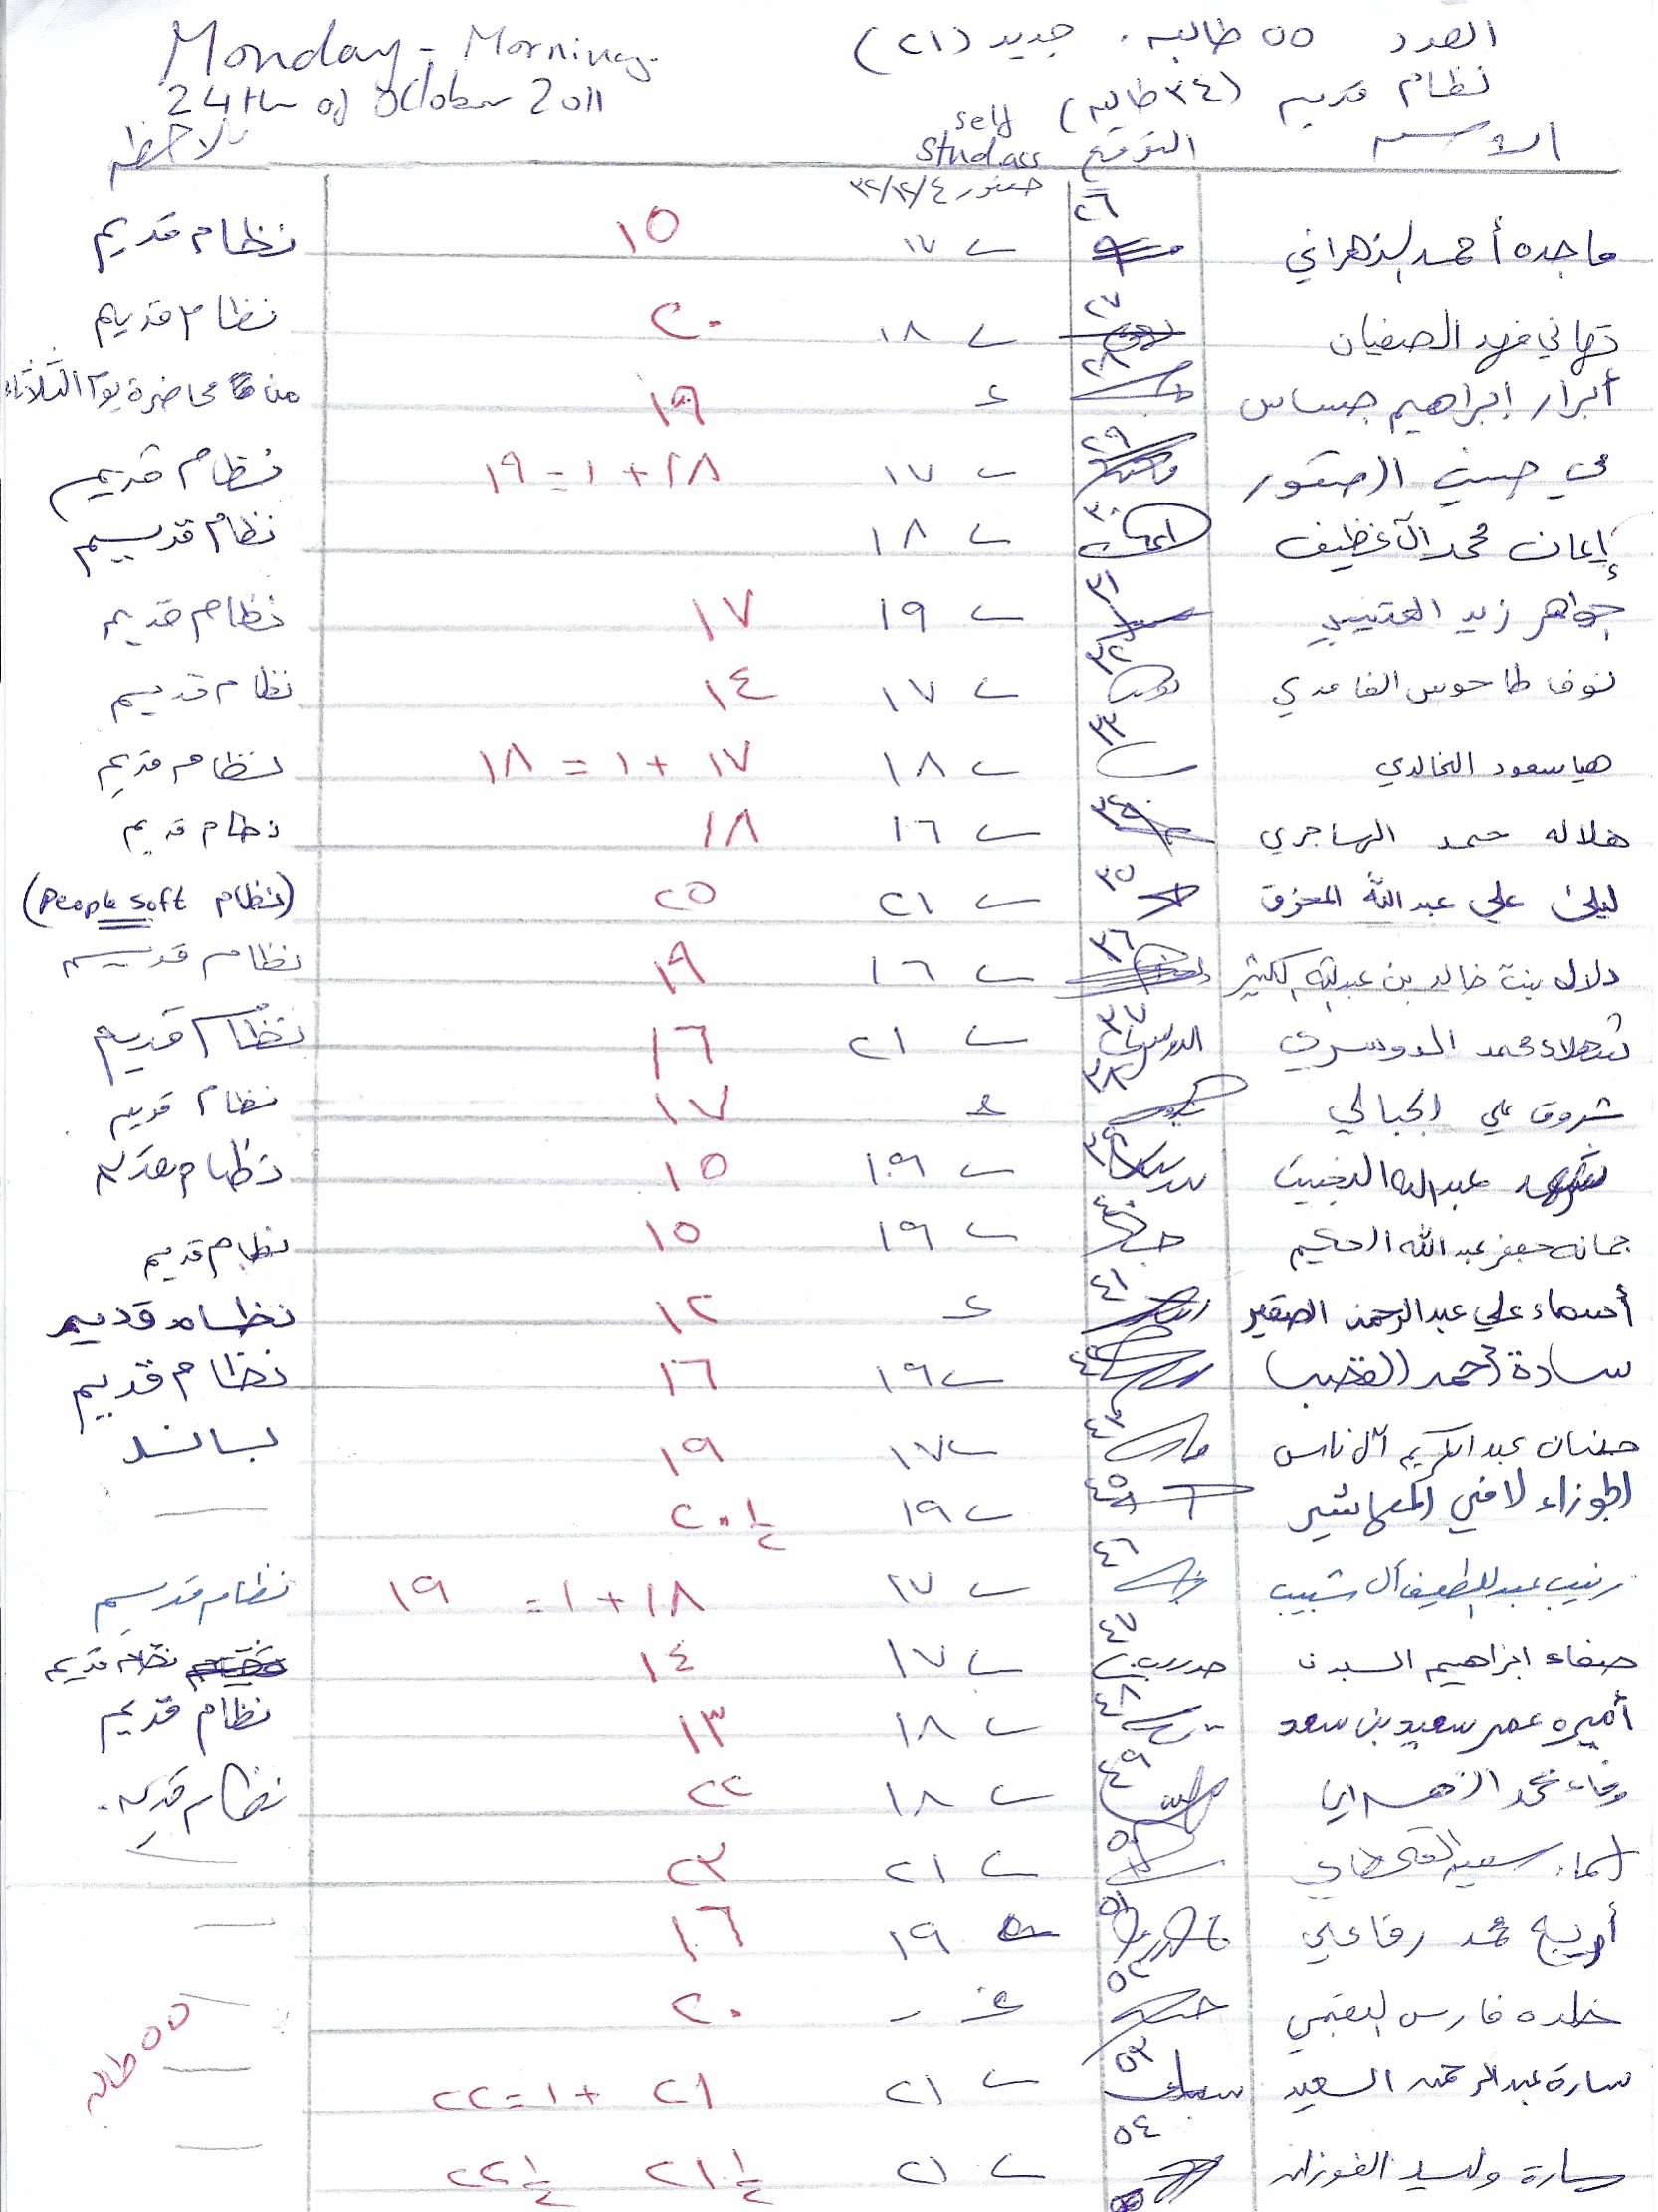 العدد ٥٥ طالبه . جديد (٢١)
Monday - Morning.
نظام قديم (٣٤ طالبه)
24th of October 2011
الاسم التوقيع self study ملاحظه
حضور ٣٢/١٢/٤
ماجده أحمد الزهراني ٢٦ ١٧ ١٥ نظام قديم
تهاني فهد الصفيان ٢٧ ١٨ ٢٠ نظام قديم
أبرار إبراهيم جساس ٢٨ غ ١٩ من محاضرة يوم الثلاثاء
مي حسين الصقور ٢٩ ١٧ ١٨ + ١ = ١٩ نظام قديم
إيمان محمد آل غظيف ٣٠ ١٨ نظام قديم
جواهر زيد العتيبي ٣١ ١٩ ١٧ نظام قديم
نوف طاحوس الغامدي ٣٢ ١٧ ١٤ نظام قديم
هيا سعود الخالدي ٣٣ ١٨ ١٧ + ١ = ١٨ نظام قديم
هلاله حمد الهاجري ٣٤ ١٦ ١٨ نظام قديم
ليلى علي عبدالله المعزق ٣٥ ٢١ ٢٥ (نظام People Soft)
دلال بنت خالد بن عبدالله الكثير ٣٦ ١٦ ١٩ نظام قديم
شهلاء محمد الدوسري ٣٧ ٢١ ١٦ نظام قديم
شروق علي الجبالي ٣٨ غ ١٧ نظام قديم
عبدالله ٣٩ ١٩ ١٥ نظام
جمانه جعفر عبدالله الحكيم ٤٠ ١٩ ١٥ نظام قديم
أسماء علي عبدالرحمن الصقير ٤١ غ ١٢ نظام قديم
سادة أحمد القضيب ٤٢ ١٩ ١٦ نظام قديم
حنان عبدالكريم آل ناس ٤٣ ١٧ ١٩ بساند
الجوزاء لافي ٤٥ ١٩ ٢٠ ½
زينب عبداللطيف آل شبيب ٤٦ ١٧ ١٨ + ١ = ١٩ نظام قديم
صفاء ابراهيم السيد ٤٧ ١٧ ١٤ نظام قديم
أميره عمر سعيد بن سعد ٤٨ ١٨ ١٣ نظام قديم
وفاء محمد الزهراني ٤٩ ١٨ ٢٢ نظام قديم.
لمياء سعيد القحطاني ٥٠ ٢١ ٢٣
أريج محمد رفاعي ٥١ ١٩ ١٦
خلده فارس البقمي ٥٢ غ ٢٠
٥٥ طالبه
سارة عبدالرحمن السعيد ٥٣ ٢١ ٢١ + ١ = ٢٢
سارة وليد الفوزان ٥٤ ٢١ ٢١ ½ ٢٢ ½